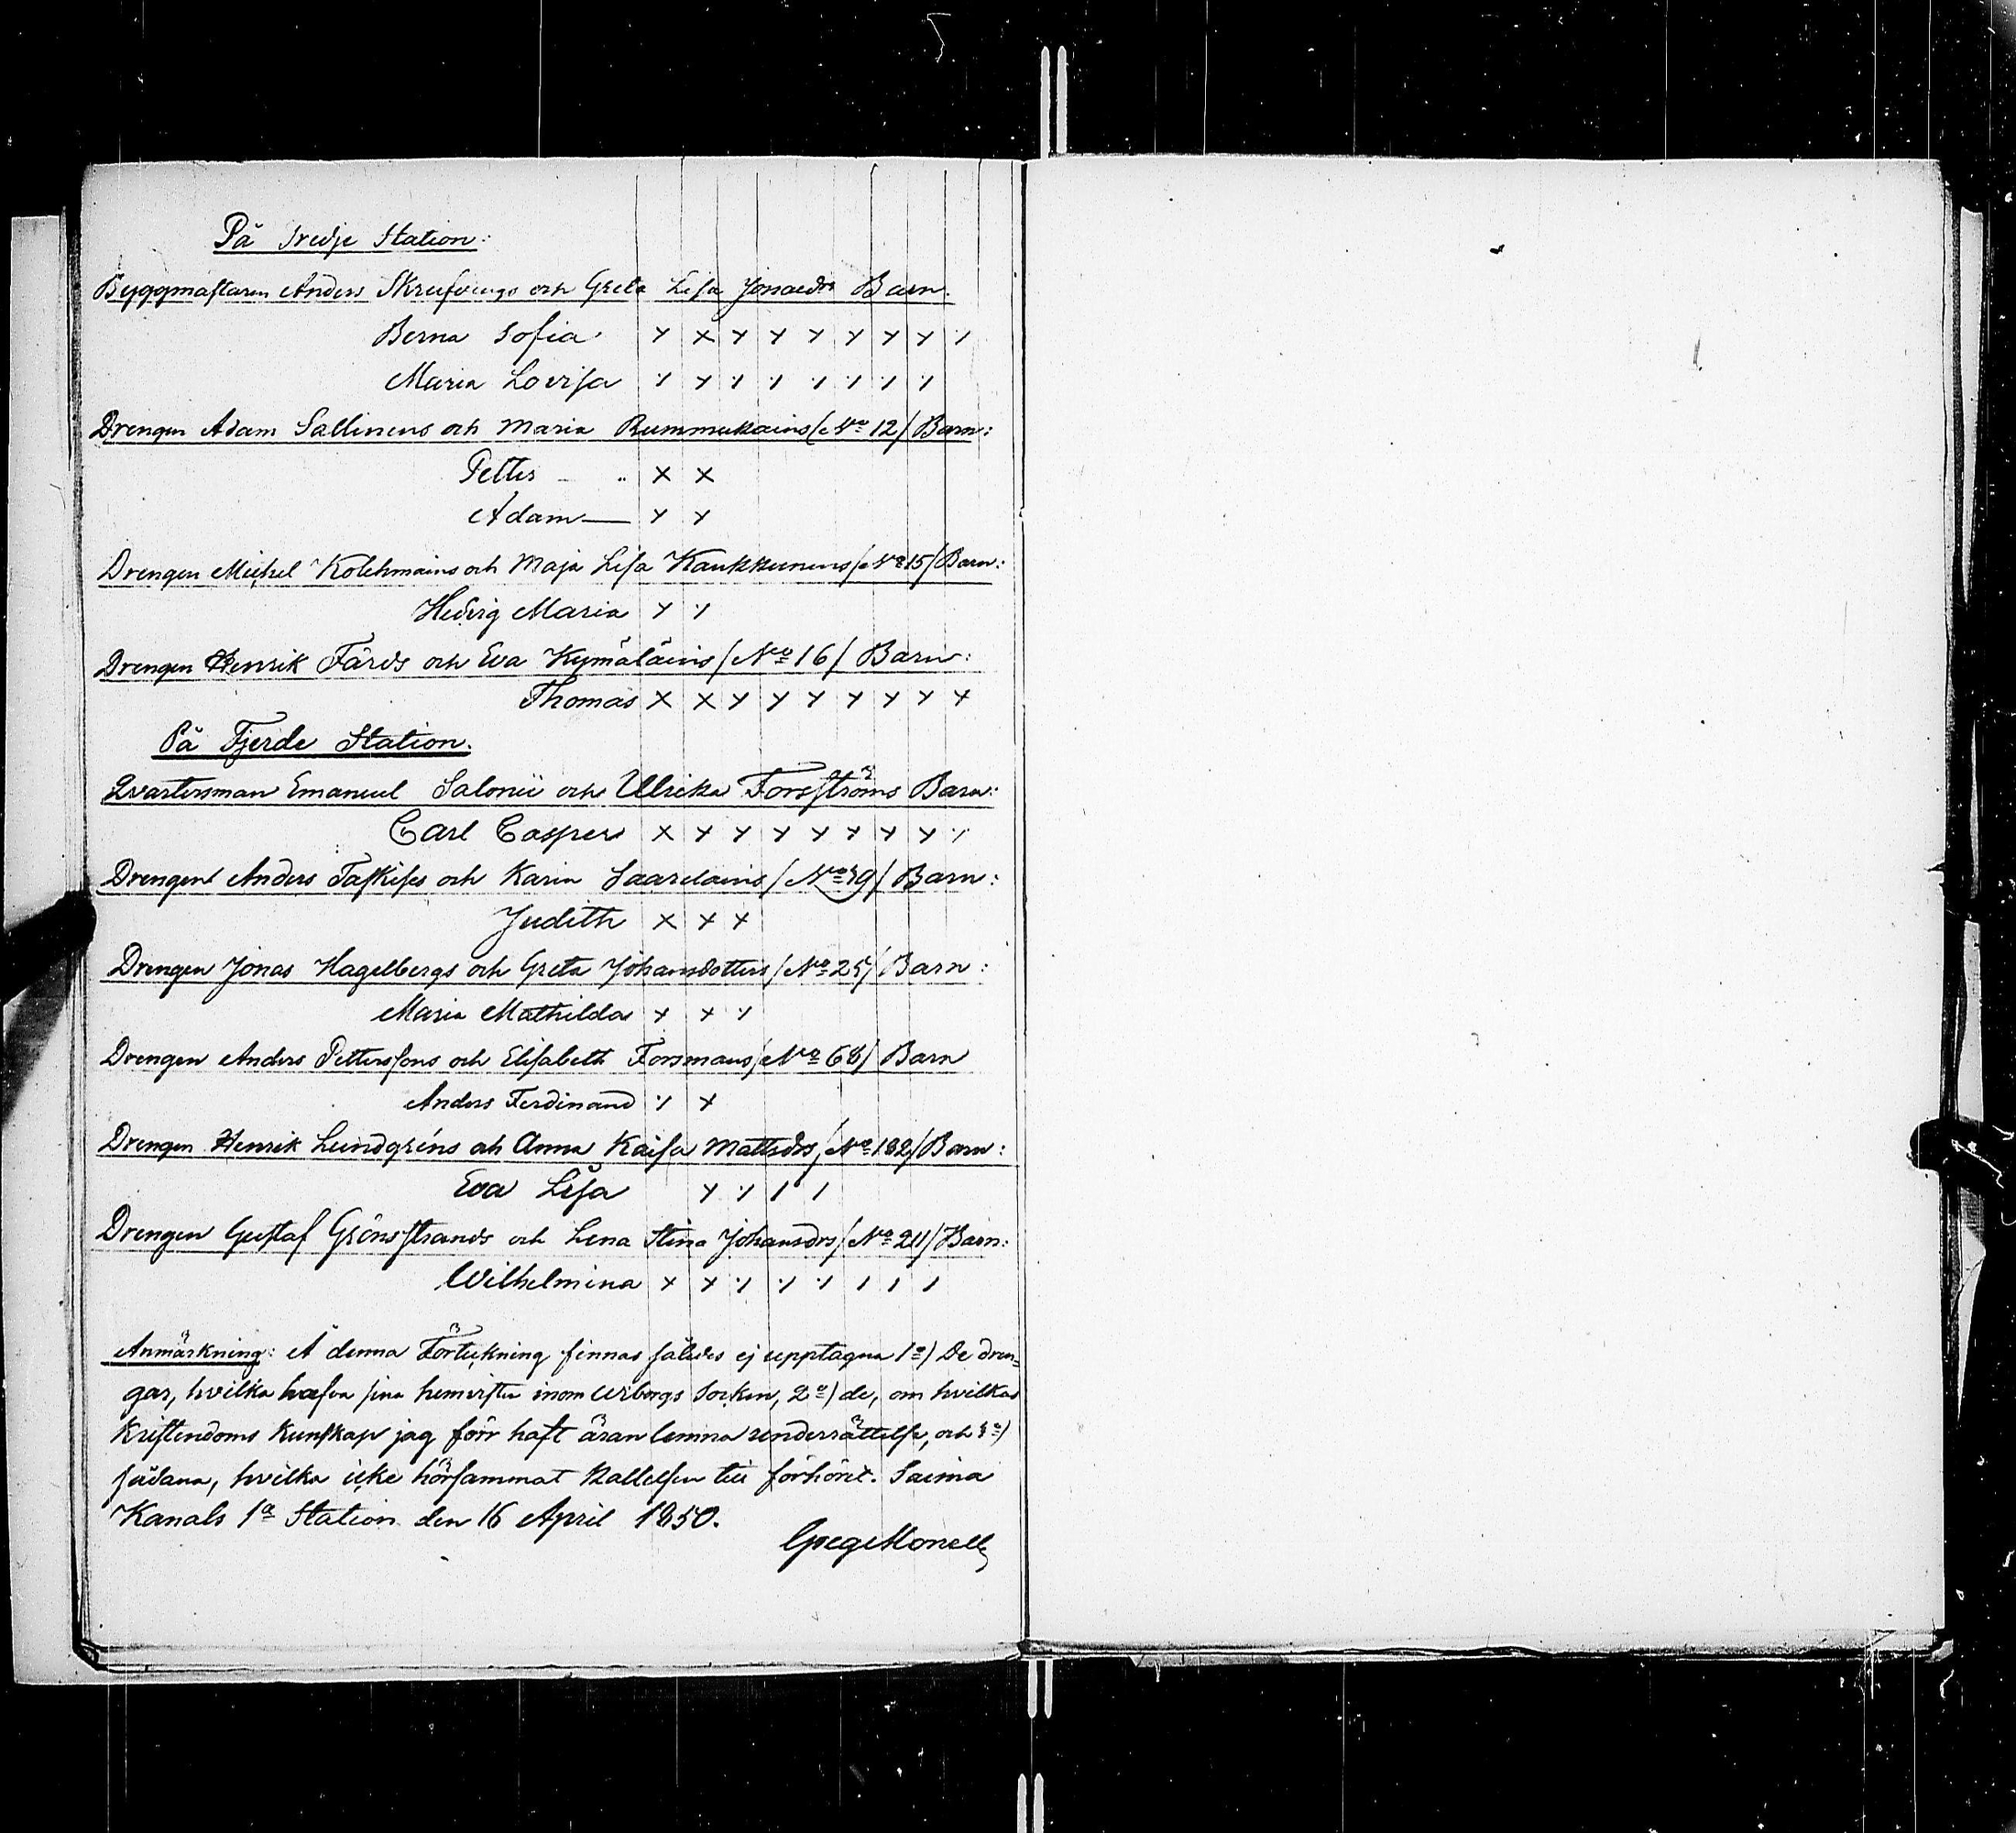 På Tredje Station:
Byggmästaren Anders Skrufvings och Greta Lisa Jonaedrs Barn.
Berna Sofia
Maria Lovisa
Drengen Adam Sallinens och Maria Rummukains /No 12/ Barn:
Petter
Adam
Drengen Michel Kolehmains och Maja Lisa Kaukkunens /No 15/ Barn:
Hedvig Maria
Drengen Henrik Färds och Eva Kymäläins /No 16/ Barn:
Thomas
På Fjerde Station.
Qvartersman Emanuel Salonii och Ulrika Forsströms Barn:
Carl Casper
Drengen Anders Taskises och Karin Saarelains /No 39/ Barn:
Judith
Drengen Jonas Hagelbergs och Greta Johansdotters /No 25/ Barn:
Maria Mathilda
Drengen Anders Petterssons och Elisabeth Forsmans /No 68/ Barn
Anders Ferdinand
Drengen Henrik Lundgréns och Anna Kaisa Mattsdrs /No 182/ Barn:
Eva Lisa
Drengen Gustaf Grönstrands och Lena Stina Johansdrs /No 211/ Barn:
Wilhelmina
Anmärkning: Å denna Förteckning finnas således ej upptagna 1o) De dren=
gar, hvilka hafva sina hemvister inom Wiborgs Socken, 2o) de, om hvilkas
Kristendoms Kunskap jag förr haft äran lemna underrättelse, och 3o)
sådana, hvilka icke hörsammat kallelsen till förhöret. Saima
Kanals 1a Station den 16 April 1850.